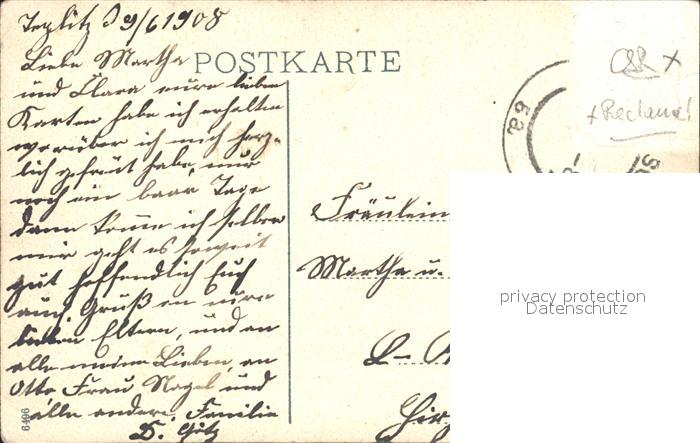 Teplitz D 9/6 1908
Liebe Martha
und Clara eure lieben
Karten habe ich erhalten
worüber ich mich herz-
lich gefreut habe, nur
noch ein baar Tage
dann komme ich selber
mir geht es soweit
gut hoffendlich Euch
auch. Gruß an eure
lieben Eltern, und an
alle meine Lieben, an
Otto Frau Nagel und
alle andere. Familie
D. Götz
6496
POSTKARTE
6a
ČSR X
+ Reclame!
Fräulein
Martha u.
privacy protection
Datenschutz